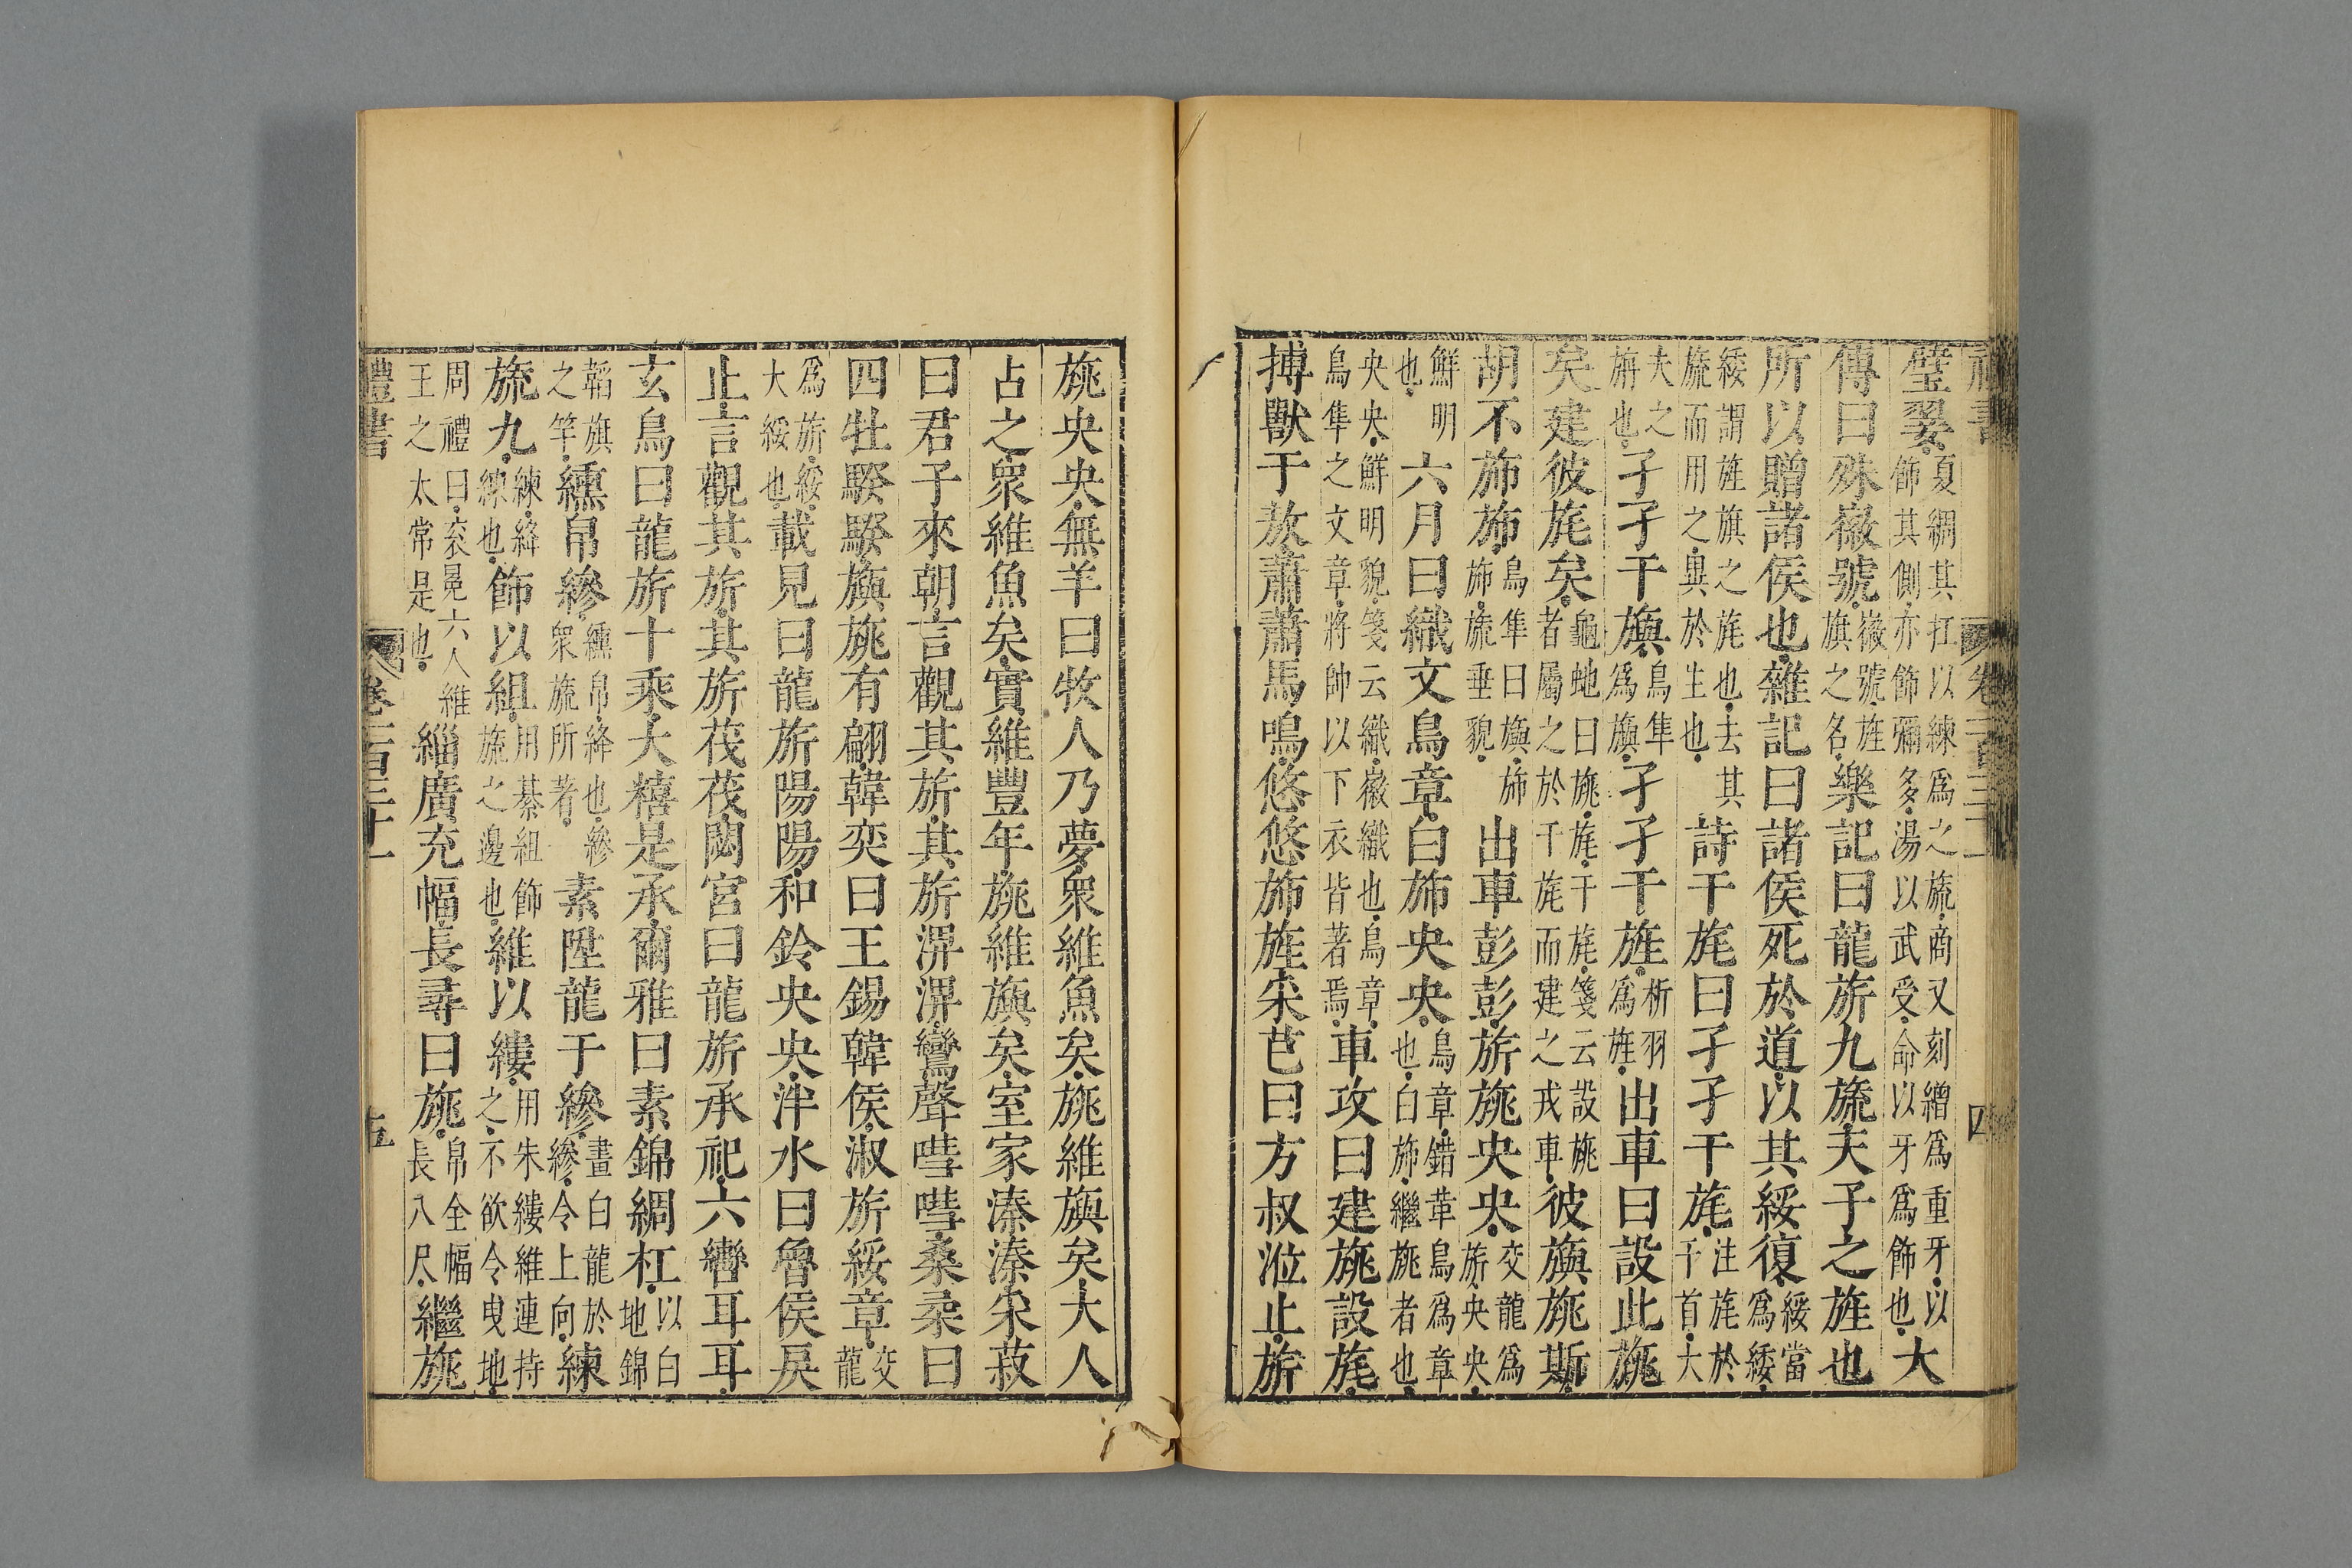 禮書 卷一百三十一 四
璧翣夏綢其杠以練爲之旒商又刻繒爲重牙以飾其側亦飾彌多湯以武受命以牙爲飾也大
傳曰殊徽號徽號旌旗之名樂記曰龍旂九旒天子之旌也
所以贈諸侯也雜記曰諸侯死於道以其綏復綏當爲緌
緌謂旌旗之旄也去其旒而用之異於生也詩干旄曰孑孑干旄注旄於干首大
夫之旃也孑孑干旟鳥隼爲旟孑孑干旌析羽爲旌出車曰設此旐
矣建彼旄矣龜虵曰旐旄干旄箋云設旐者屬之於干旄而建之戎車彼旟旐斯
胡不旆旆鳥隼曰旟旆旆旒垂貌出車彭彭旂旐央央交龍爲旂央央
鮮明也六月曰織文鳥章白旆央央鳥章錯革鳥爲章也白旆繼旐者也
央央鮮明貌箋云織徽織也鳥章鳥隼之文章將帥以下衣皆著焉車攻曰建旐設旄
搏獸于敖蕭蕭馬鳴悠悠旆旌采芑曰方叔涖止旂
旐央央無羊曰牧人乃夢衆維魚矣旐維旟矣大人
占之衆維魚矣實維豐年旐維旟矣室家溱溱采菽
曰君子來朝言觀其旂其旂淠淠鸞聲嘒嘒桑柔曰
四牡騤騤旟旐有翩韓奕曰王錫韓侯淑旂綏章交龍
爲旂綏大綏也載見曰龍旂陽陽和鈴央央泮水曰魯侯戾
止言觀其旂其旂茷茷閟宮曰龍旂承祀六轡耳耳
玄鳥曰龍旂十乘大糦是承爾雅曰素錦綢杠以白地錦
韜旗之竿纁帛縿纁帛絳也縿衆旒所著素陞龍于縿畫白龍於縿令上向練
旒九練絳練也飾以組用綦組飾旒之邊也維以縷用朱縷維連持之不欲令曳地
周禮曰衮冕六人維王之太常是也緇廣充幅長尋曰旐帛全幅長八尺繼旐
禮書 卷一百三十一 五